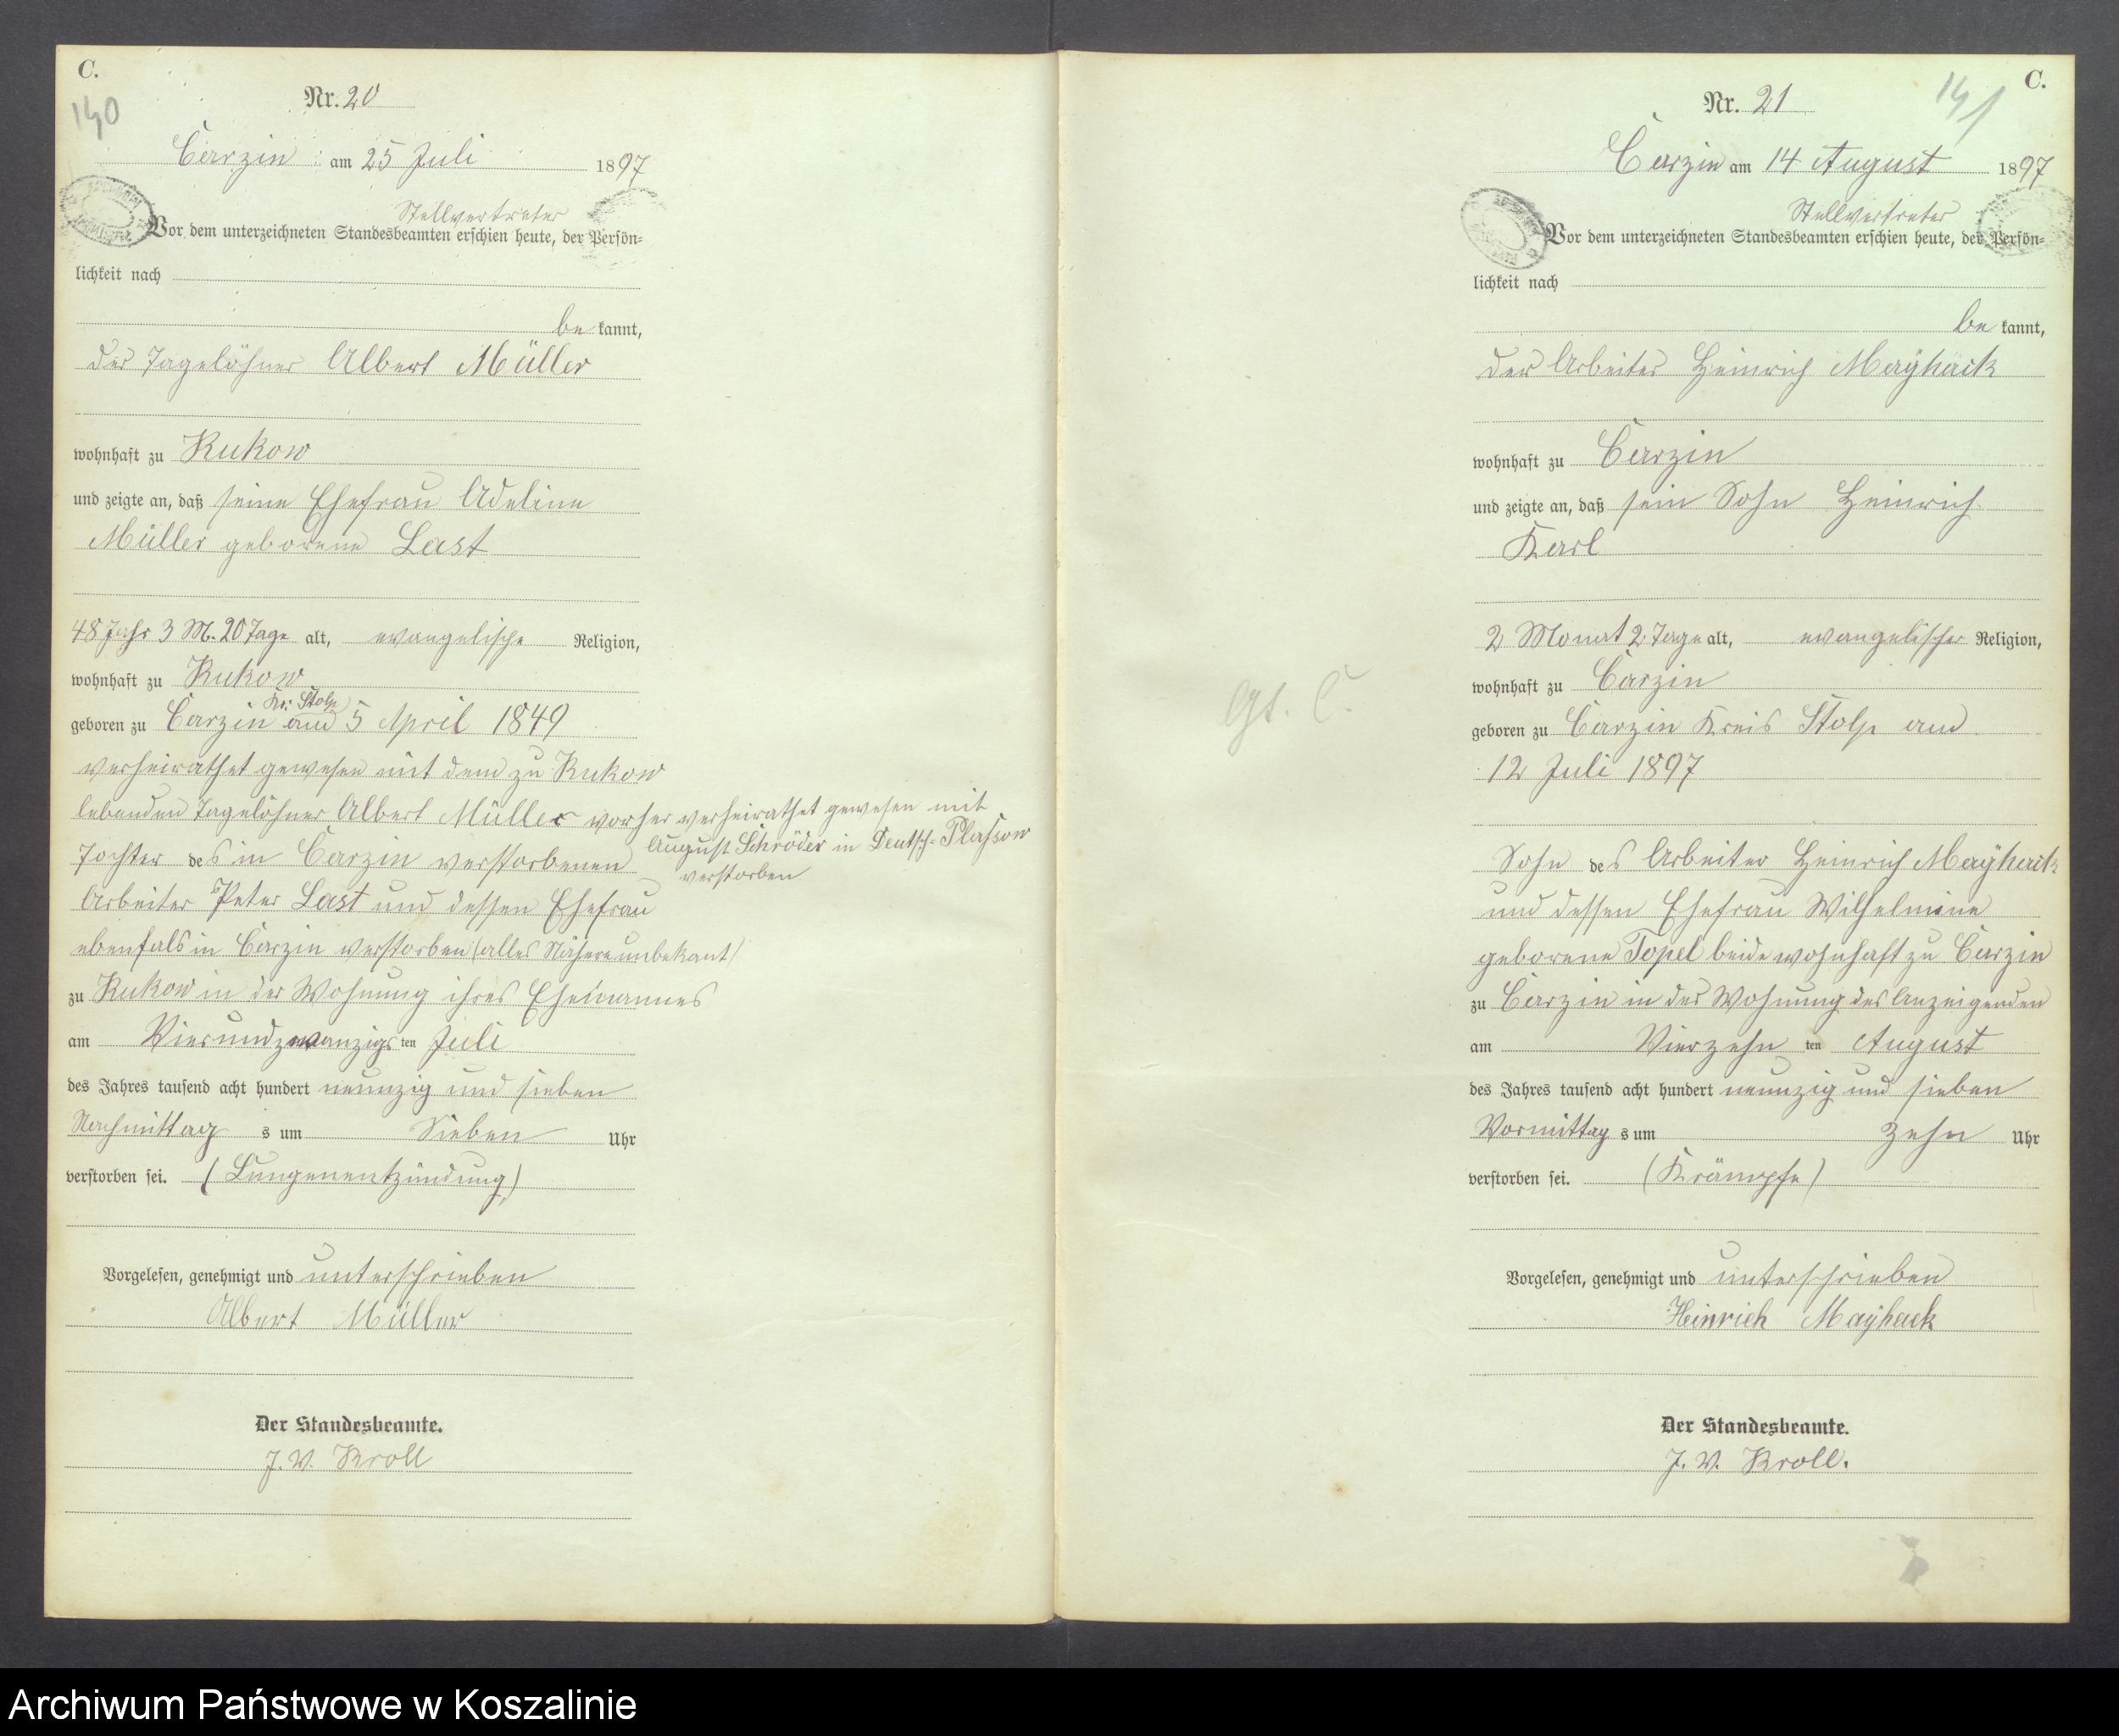 C.
140
Nr. 20
Carzin am 25 Juli 1897
Stellvertreter
Vor dem unterzeichneten Standesbeamten erschien heute, der Persön=
lichkeit nach
be kannt,
der Tagelöhner Albert Müller
wohnhaft zu Kukow
und zeigte an, daß seine Ehefrau Adeline
Müller geborene Last
48 Jahr 3 M. 20 Tage alt, evangelische Religion,
wohnhaft zu Kukow
Kr: Stolp
geboren zu Carzin am 5 April 1849
verheirathet gewesen mit dem zu Kukow
lebenden Tagelöhner Albert Müller vorher verheirathet gewesen mit
August Schröder in Deutsch-Plassow
verstorben
Tochter des in Carzin verstorbenen
Arbeiter Peter Last und dessen Ehefrau
ebenfals in Carzin verstorben (alles Nähere unbekant)
zu Kukow in der Wohnung ihres Ehemannes
am Vierundzwanzigsten Juli
des Jahres tausend acht hundert neunzig und sieben
Nachmittag s um Sieben Uhr
verstorben sei. (Lungenentzündung)
Vorgelesen, genehmigt und unterschrieben
Albert Müller
Der Standesbeamte.
J. V. Kroll
C.
141
Nr. 21
Carzin am 14 August 1897
Stellvertreter
Vor dem unterzeichneten Standesbeamten erschien heute, der Persön=
lichkeit nach
be kannt,
der Arbeiter Heinrich Mayhack
wohnhaft zu Carzin
und zeigte an, daß sein Sohn Heinrich
Karl
2 Monat 2 Tage alt, evangelischer Religion,
wohnhaft zu Carzin
geboren zu Carzin Kreis Stolp am
12 Juli 1897
Sohn des Arbeiter Heinrich Mayhack
und dessen Ehefrau Wilhelmine
geborene Topel beide wohnhaft zu Carzin
zu Carzin in der Wohnung des Anzeigenden
am Vierzehn ten August
des Jahres tausend acht hundert neunzig und sieben
Vormittag s um Zehn Uhr
verstorben sei. (Krämpfe)
Vorgelesen, genehmigt und unterschrieben
Heinrich Mayhack
Der Standesbeamte.
J. V. Kroll.
Archiwum Państwowe w Koszalinie